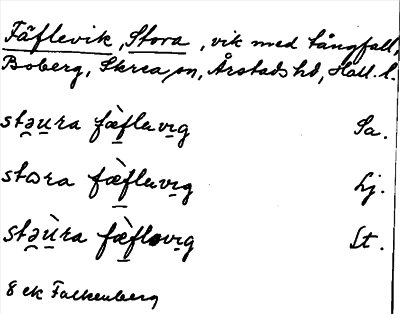 Fäflevik, Stora, vik med tångfall,
Boberg, Skrea sn, Årstads hd, Hall. l.
stəu̯ra fæ̀flevi̠g Sa.
stɷra fæ̀flevi̠g Lj.
stəù̯ra fæ̀flevi̠g St.
8 ek Falkenberg